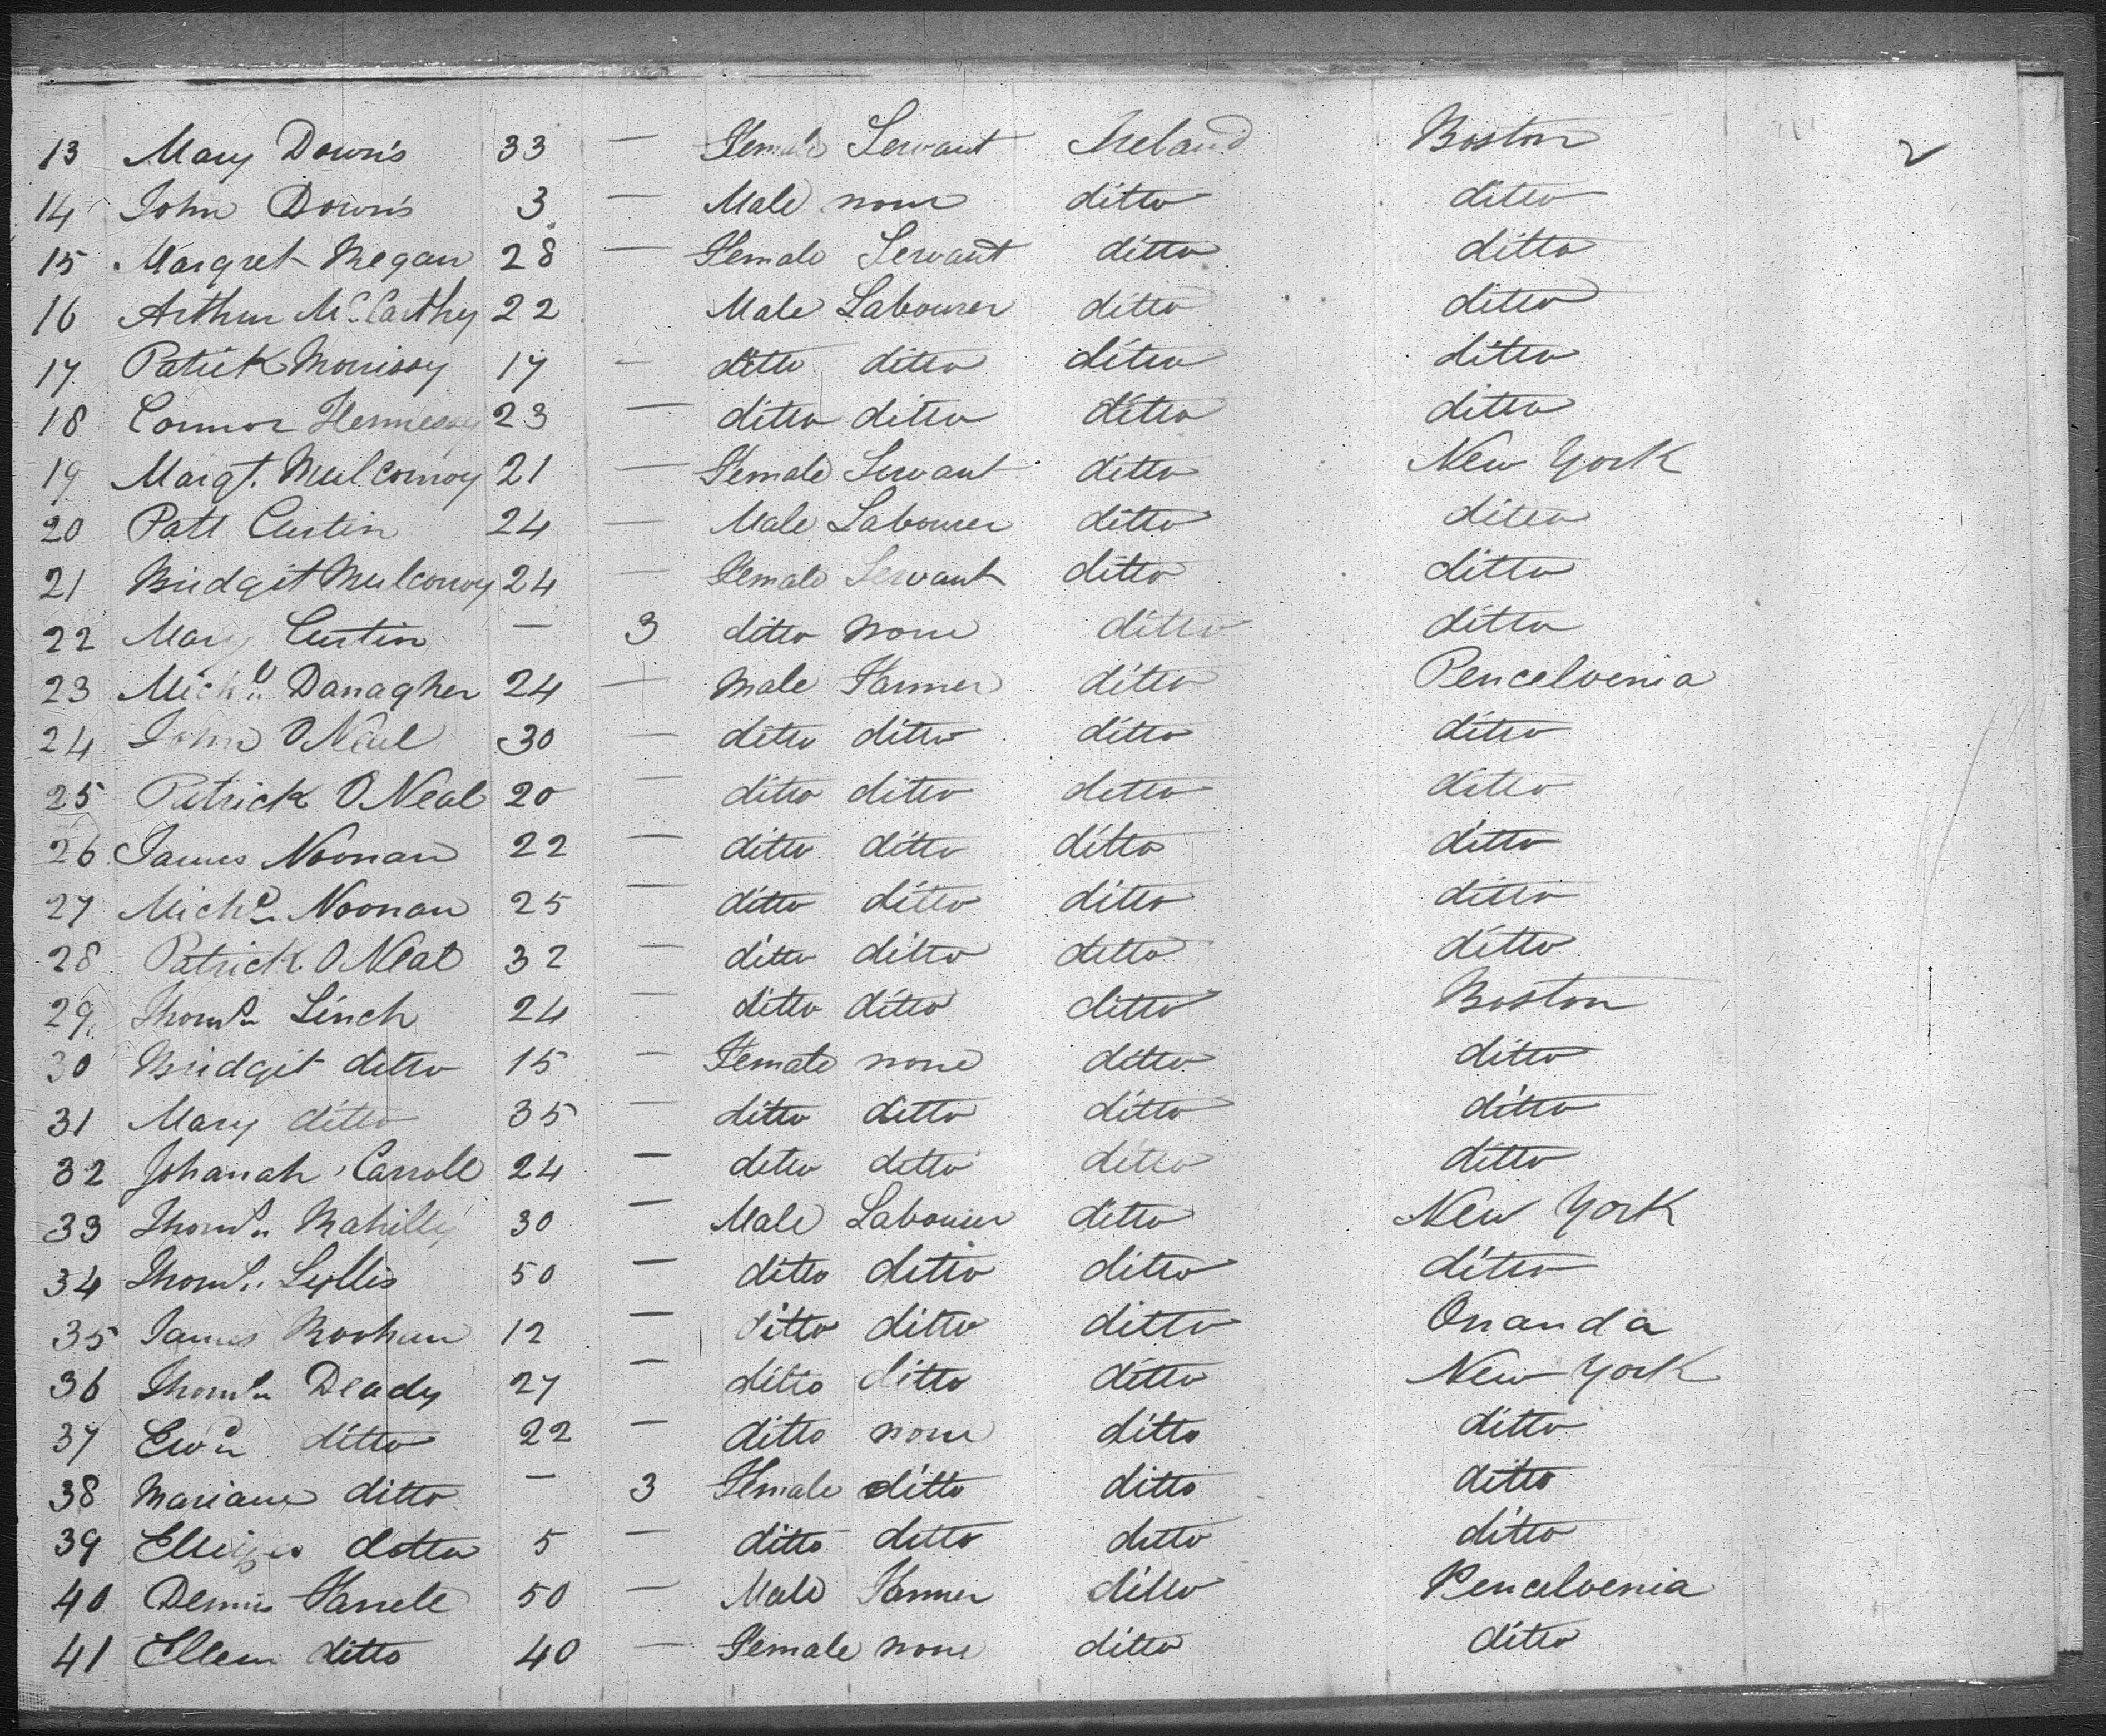 13 Mary Down's 33 — Female Servant Ireland Boston 2
14 John Down's 3 — Male none ditto ditto
15 Margret Regan 28 — Female Servant ditto ditto
16 Arthur McCarthy 22 Male Labourer ditto ditto
17 Patrick Morrissy 17 — ditto ditto ditto ditto
18 Connor Hennessy 23 — ditto ditto ditto ditto
19 Margt. Mulconroy 21 — Female Servant ditto New York
20 Patt Curtin 24 — Male Labourer ditto ditto
21 Bridgit Mulconroy 24 — Female Servant ditto ditto
22 Mary Curtin — 3 ditto none ditto ditto
23 Michl. Danagher 24 — Male Farmer ditto Pencelvenia
24 John O Neal 30 — ditto ditto ditto ditto
25 Patrick O Neal 20 — ditto ditto ditto ditto
26 James Noonan 22 — ditto ditto ditto ditto
27 Michl. Noonan 25 — ditto ditto ditto ditto
28 Patrick O Neal 32 — ditto ditto ditto ditto
29 Thoms. Linch 24 — ditto ditto ditto Boston
30 Bridgit ditto 15 — Female none ditto ditto
31 Mary ditto 35 — ditto ditto ditto ditto
32 Johanah Carroll 24 — ditto ditto ditto ditto
33 Thoms. 30 — Male Labourer ditto New York
34 Thoms. 50 — ditto ditto ditto ditto
35 James 12 — ditto ditto ditto Onanda
36 Thoms. Deady 27 — ditto ditto ditto New York
37 ditto 22 — ditto none ditto ditto
38 Mariane ditto — 3 Female ditto ditto ditto
39 ditto 5 — ditto ditto ditto ditto
40 Dennis Farrele 50 — Male Farmer ditto Pencelvenia
41 Ellen ditto 40 — Female none ditto ditto